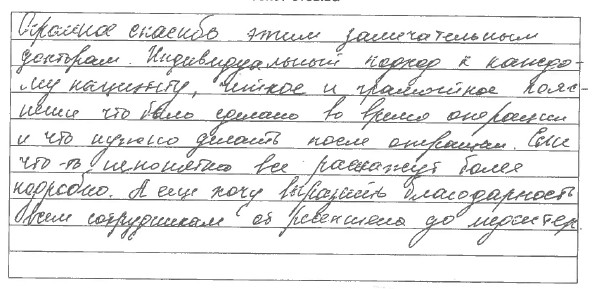 Огромное спасибо этим замечательным
докторам. Индивидуальный подход к каждо-
му пациенту, чёткое и грамотное пояс-
нение что было сделано во время операции
и что нужно делать после операции. Если
что-то непонятно все расскажут более
подробно. А еще хочу выразить благодарность
всем сотрудникам от ресепшена до медсестер.